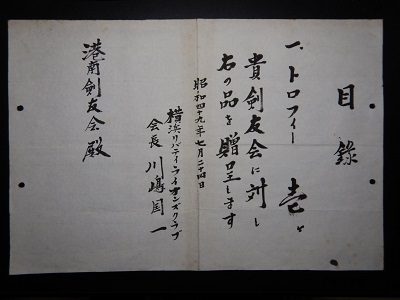 目録
一、トロフィー 壱ヶ
貴剣友会に対し
右の品を贈呈します
昭和四十九年七月二十四日
横浜リバティライオンズクラブ
会長 川嶋国一
港南剣友会殿